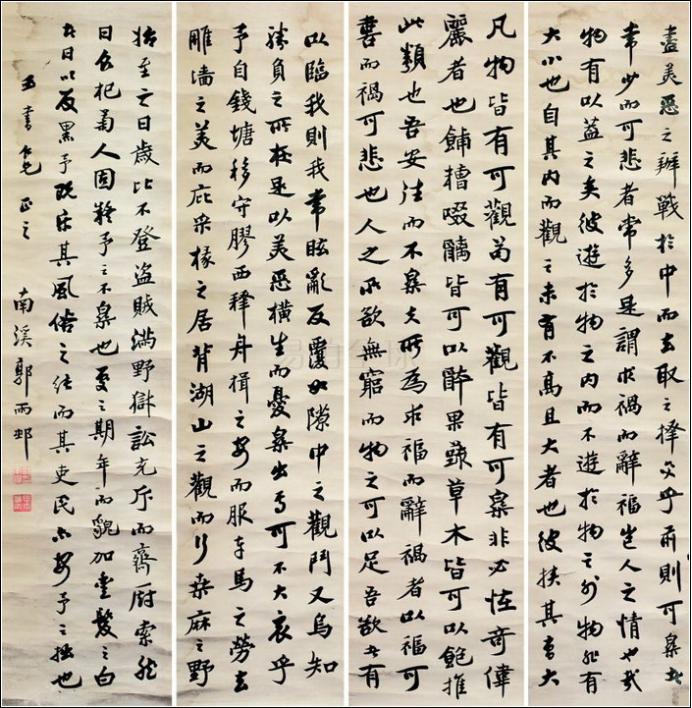 盡美惡之辨戰於中而去取之擇交乎前則可樂者
常少而可悲者常多是謂求禍而辭福豈人之情也哉
物有以蓋之矣彼遊於物之內而不遊於物之外物非有
大小也自其內而觀之未有不高且大者也彼挾其高大
凡物皆有可觀苟有可觀皆有可樂非必怪奇偉
麗者也餔糟啜醨皆可以醉果蔬草木皆可以飽推
此類也吾安往而不樂夫所為求福而辭禍者以福可
喜而禍可悲也人之所欲無窮而物之可以足吾欲者有
以臨我則我常眩亂反覆如隙中之觀鬥又烏知
勝負之所在是以美惡橫生而憂樂出焉可不大哀乎
予自錢塘移守膠西釋舟楫之安而服車馬之勞去
雕墻之美而庇采椽之居背湖山之觀而行桑麻之野
始至之日歲比不登盜賊滿野獄訟充斥而齋廚索然
日食杞菊人固疑予之不樂也處之期年而貌加豐髮之白
者日以反黑予既樂其風俗之淳而其吏民亦安予之拙也
玉書仁兄正之
南溪郭雨邨